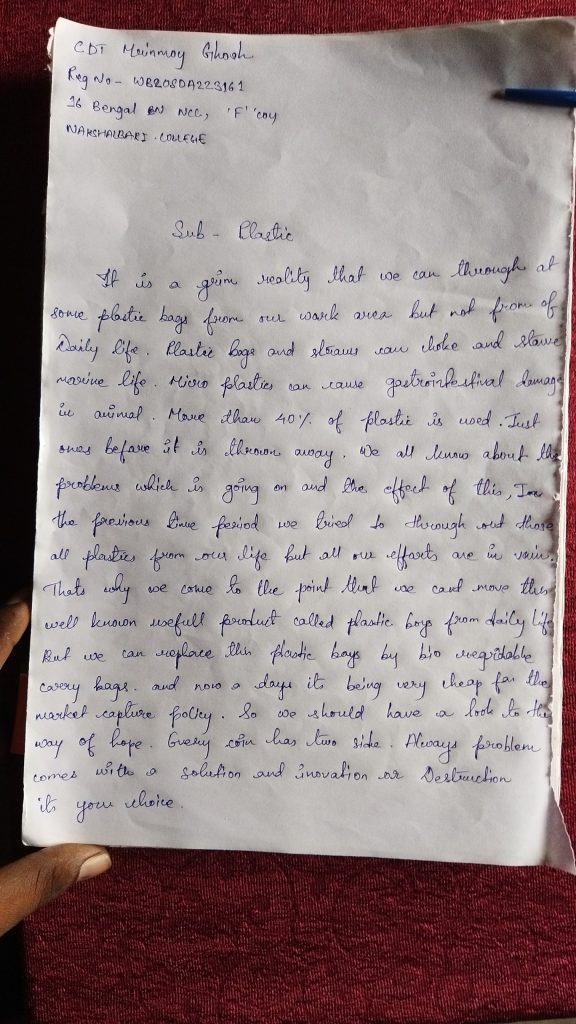 CDT Mrinmoy Ghosh
Reg No - WB20SDA223161
16 Bengal BN NCC, 'F' coy
NAKSHALBARI COLLEGE
Sub - Plastic
It is a grim reality that we can through at
some plastic bags from our work area but not from of
Daily life. Plastic bags and straws can choke and starve
marine life. Micro plastics can cause gastrointestinal damage
in animal. More than 40% of plastic is used. Just
ones before it is thrown away. We all know about the
problems which is going on and the effect of this, In
the previous time period we tried to through out those
all plastics from our life but all our efforts are in vain.
Thats why we come to the point that we cant move this
well known usefull product called plastic bags from daily life
But we can replace this plastic bags by bio degridable
carry bags. and now a days its being very cheap for the
market capture policy. So we should have a look to the
way of hope. Every coin has two side. Always problem
comes with a solution and inovation or Destruction
its your choice.